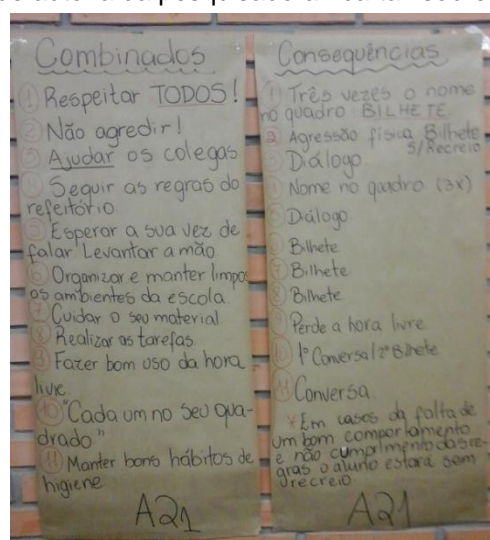 Combinados
1 Respeitar TODOS!
2 Não agredir!
3 Ajudar os colegas
4 Seguir as regras do
refeitório.
5 Esperar a sua vez de
falar Levantar a mão
6 Organizar e manter limpos
os ambientes da escola
7 Cuidar o seu material
8 Realizar as tarefas
9 Fazer bom uso da hora
livre.
10 "Cada um no seu qua-
drado."
11 Manter bons hábitos de
higiene
A21
Consequências
1 Três vezes o nome
no quadro BILHETE
2 Agressão física Bilhete
S/Recreio
3 Diálogo
4 Nome no quadro (3x)
5 Diálogo
6 Bilhete
7 Bilhete
8 Bilhete
9 Perde a hora livre
10 1º Conversa/2º Bilhete
11 Conversa.
* Em casos da falta de
um bom comportamento
e não cumprimento das re-
gras o aluno estará sem
recreio.
A21